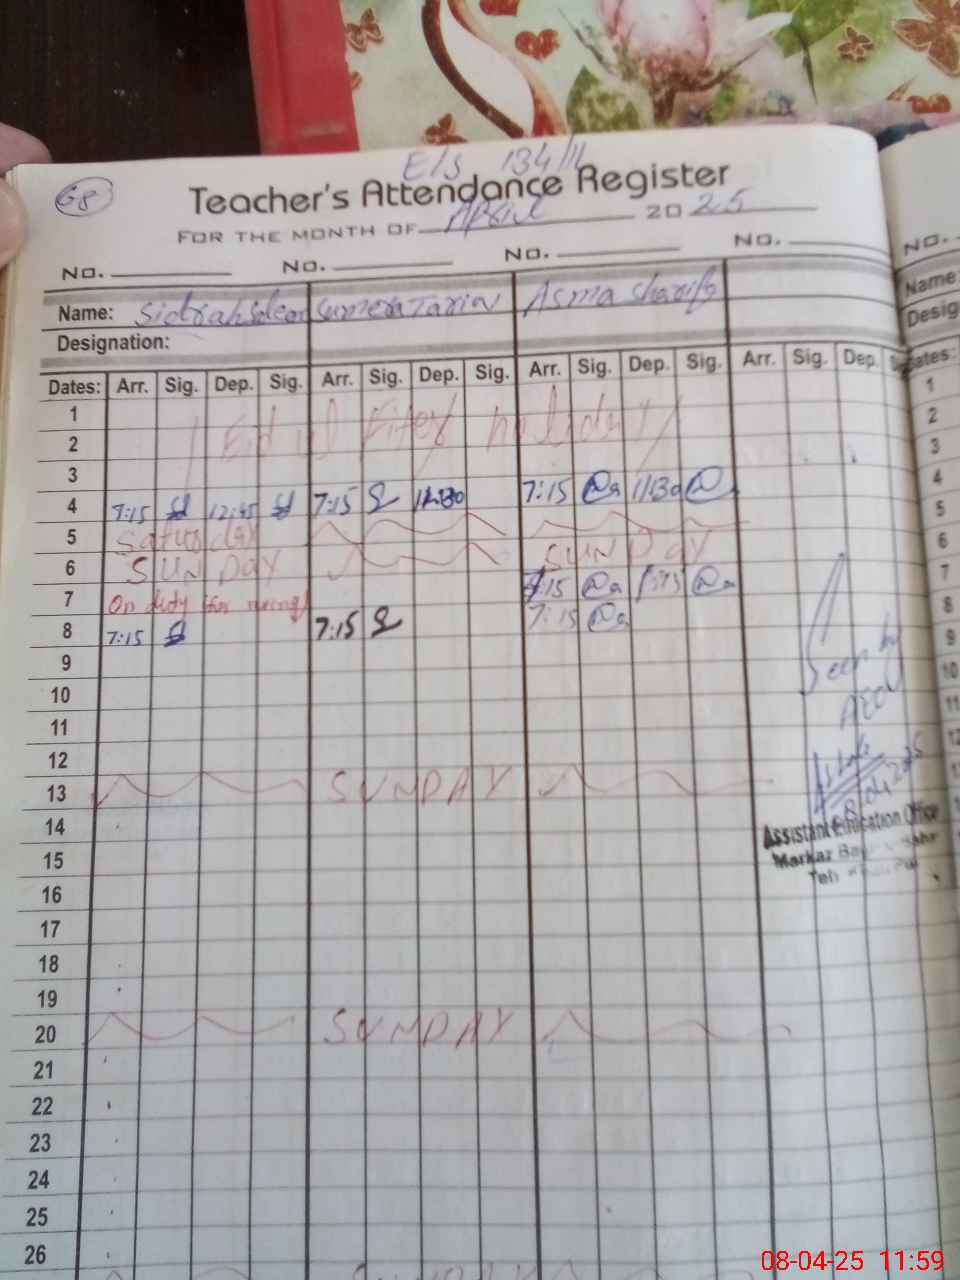 68
E/S 134/
Teacher's Attendance Register
FOR THE MONTH OF April 2025
No. No. No. No. No.
Name: Sidrah Sumera Tarin Asma Sharif Name:
Designation: Desig
Dates: Arr. Sig. Dep. Sig. Arr. Sig. Dep. Sig. Arr. Sig. Dep. Sig. Arr. Sig. Dep. Dates:
1 1
2 Eid ul Fiter holiday 2
3 3
4 7:15 12:45 7:15 11:30 7:15 11:30 4
5 Saturday 5
6 SUNDAY SUNDAY 6
7 On duty 7:15 7
8 7:15 7:15 7:15 8
9 9
10 Seen by 10
11 AEO 11
12 12
13 SUNDAY
14 Assistant Education Office
15 Markaz
16 Teh
17
18
19
20 SUNDAY
21
22
23
24
25
26
SUNDAY
08-04-25 11:59